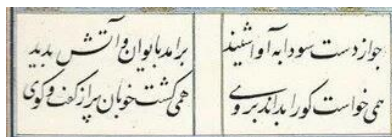 جو از دست سودابه آوا شنید برامد بایوان و آتش بدید
همی خواست کو را بد آید بروی همی کشت خوبان پر از کفت و کوی